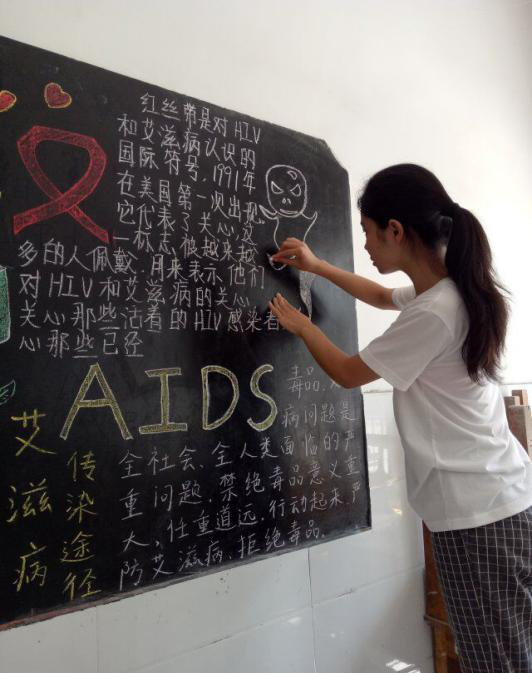 红丝带是对HIV
和艾滋病认识的
国际符号，1991年
在美国第一次出现，
它代表了关心，这
一标志被越来越
多的人佩戴，用来表示他们
对HIV和艾滋病的关心，
关心那些活着的HIV感染者
心那些已经
AIDS
毒品，
病问题是
全社会、全人类面临的严
重问题，禁绝毒品意义重
大，任重道远，行动起来，严
防艾滋病、拒绝毒品.
艾滋病
传染途径